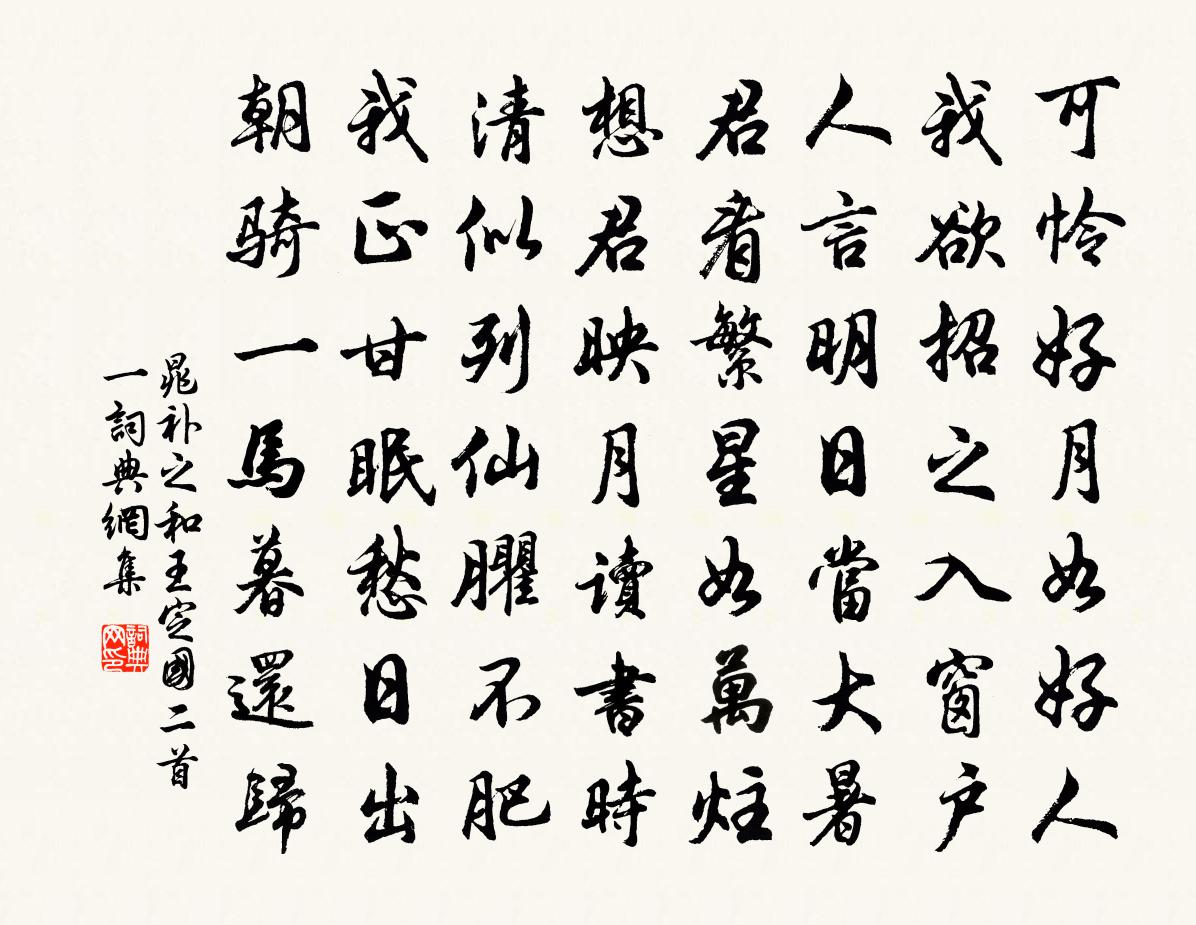 可怜好月如好人
我欲招之入窗户
人言明日當大暑
君看繁星如萬炷
想君映月讀書時
清似列仙臞不肥
我正甘眠愁日出
朝骑一馬暮還歸
晁补之和王定國二首
一詞典網集
詞典网印